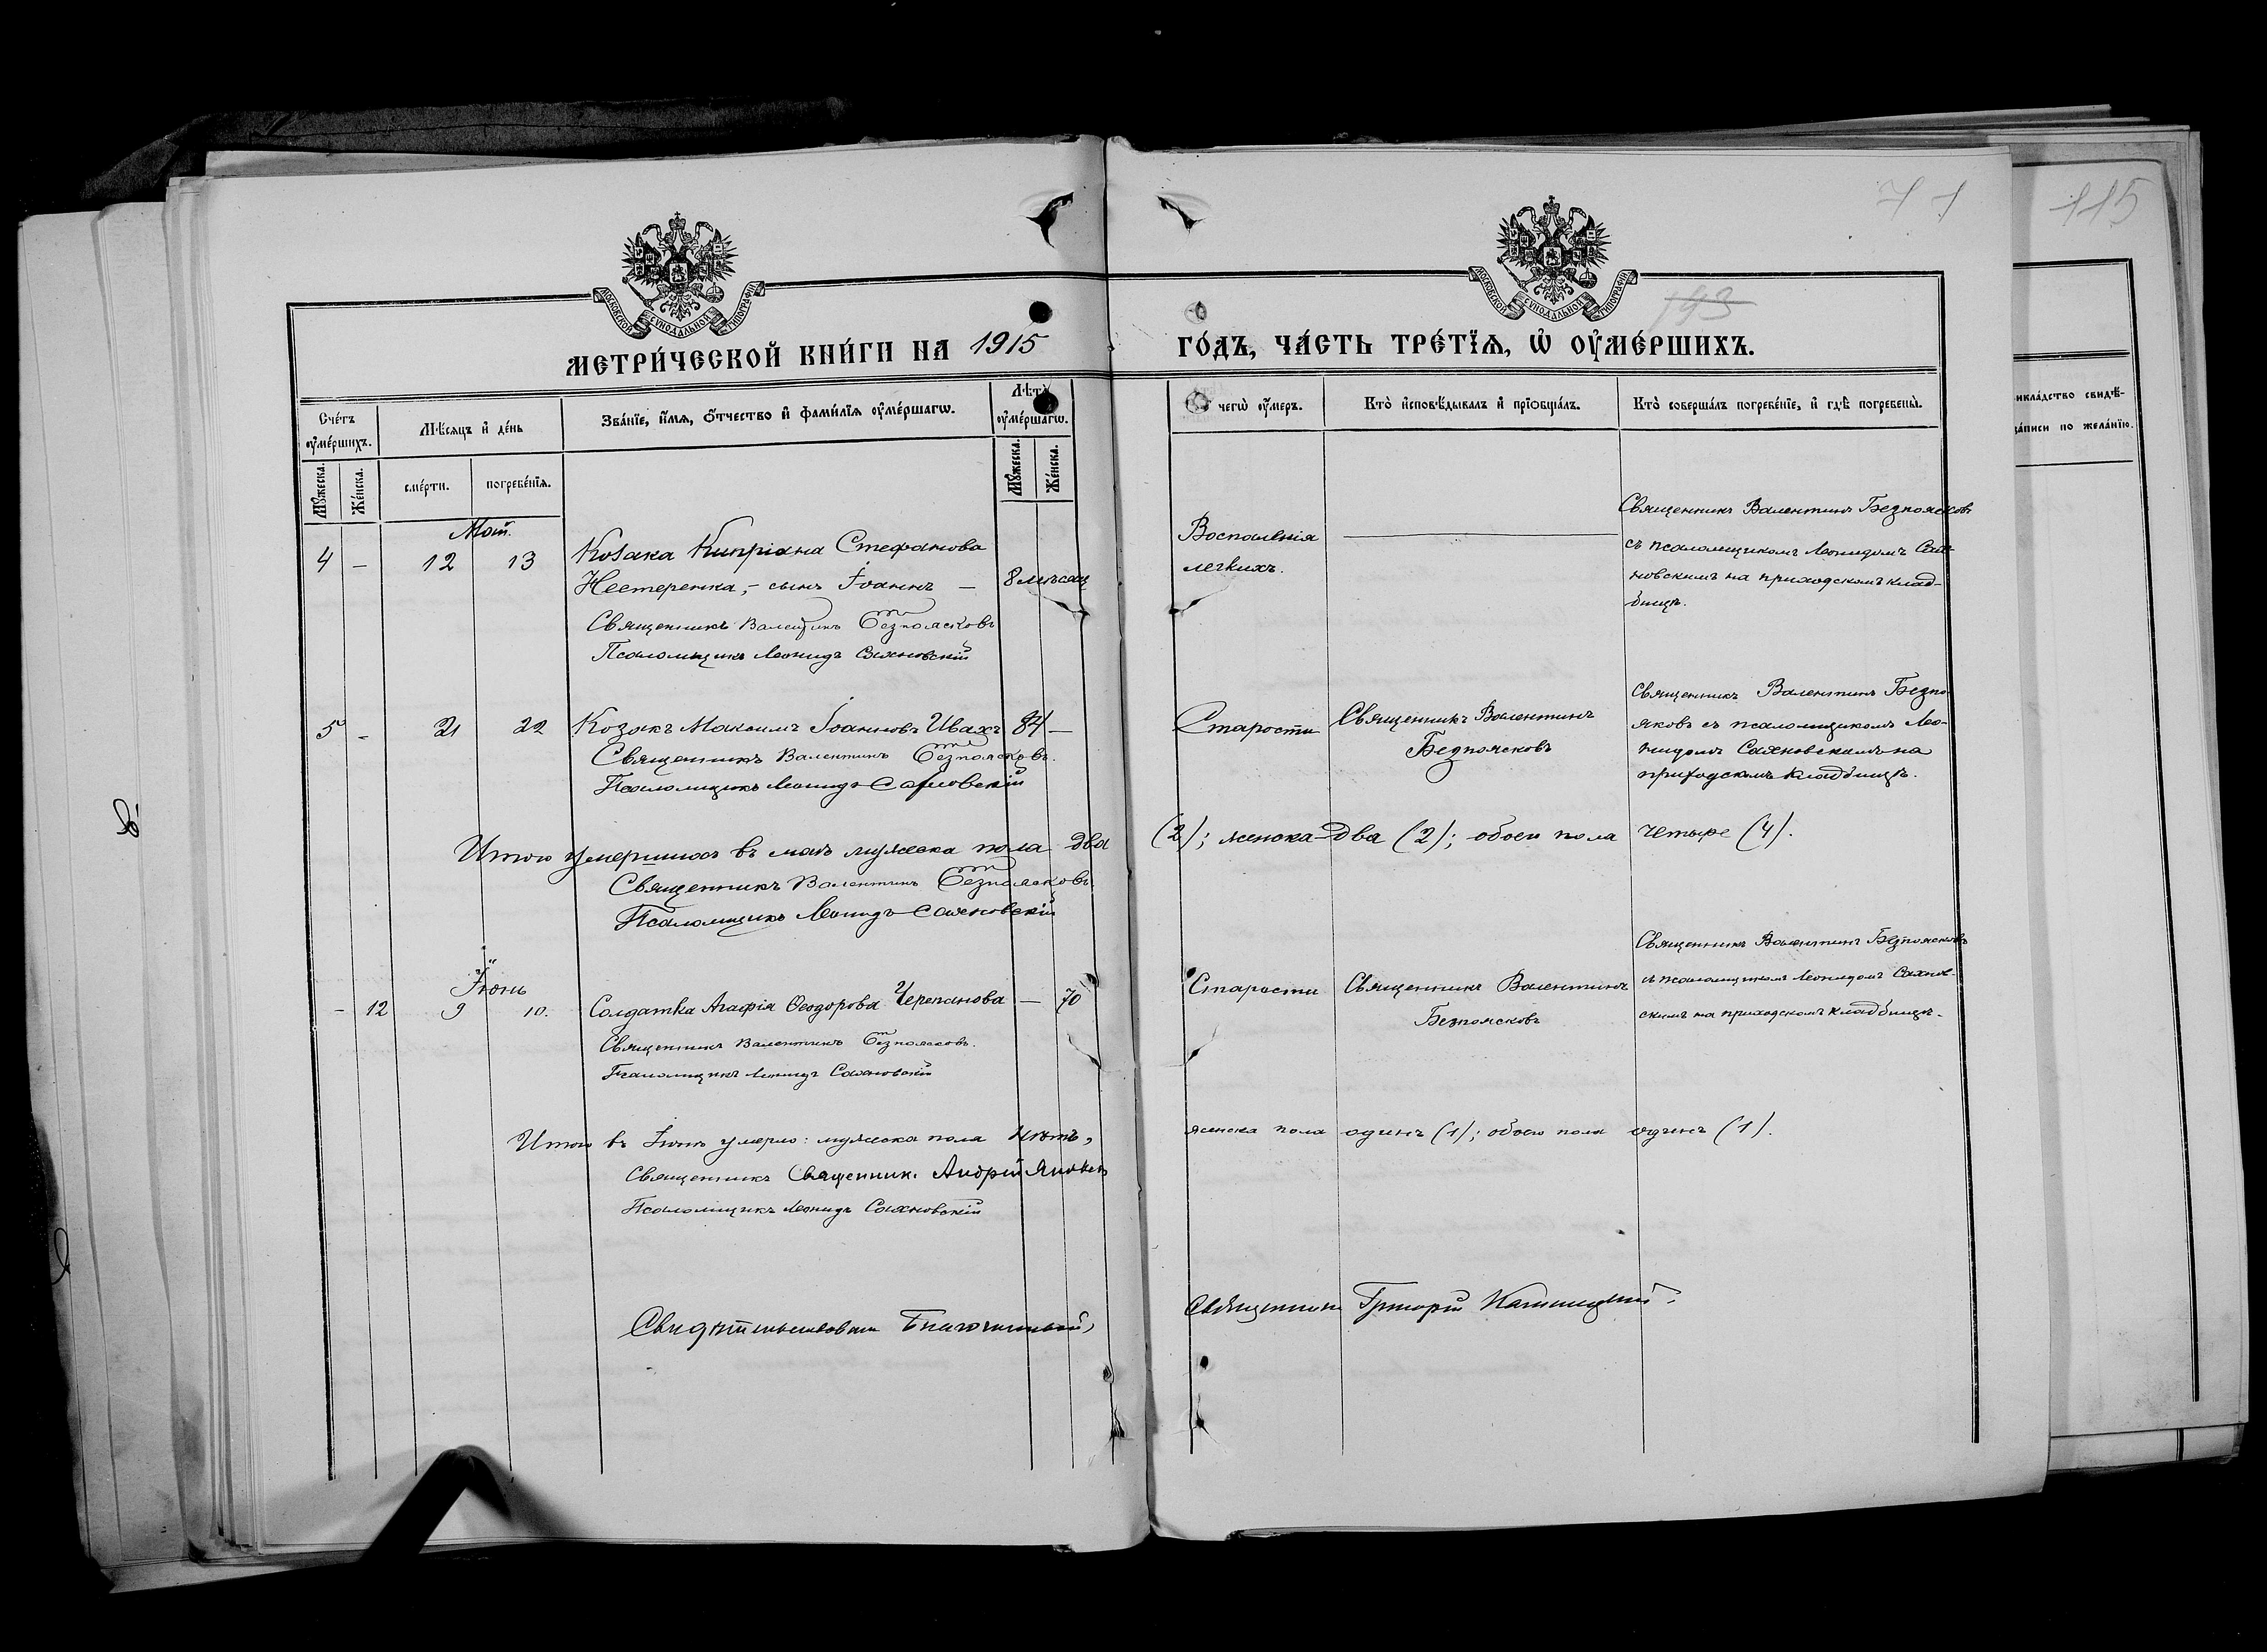 71
115
193
МОСКОВСКОЙ СѴНОДАЛЬНОЙ ТИПОГРАФІИ
МОСКОВСКОЙ СѴНОДАЛЬНОЙ ТИПОГРАФІИ
МЕТРИ́ЧЕСКОЙ КНИ́ГИ НА 1915 ГО́ДЪ, ЧА́СТЬ ТРЕ́ТЇѦ, Ѡ҆ ОУ҆МЕ́РШИХЪ.
Сче́тъ оу҆ме́ршихъ.
Мѣ́сяцъ и҆ де́нь
Зва́нїе, и҆́мѧ, ѻ҆́тчество и҆ фами́лїѧ оу҆ме́ршагѡ.
Лѣ́та оу҆ме́ршагѡ.
чегѡ̀ оу҆́меръ.
Кто̀ и҆сповѣ́дывалъ и҆ прїѻбща́лъ.
Кто̀ соверша́лъ погребе́нїе, и҆ гдѣ̀ погребены̀.
икла́дство свидѣ́-
за́писи по жела́нїю.
Мꙋ́жеска.
Же́нска.
сме́рти.
погребе́нїѧ.
Мꙋ́жеска.
Же́нска.
Май.
4 — 12 13 Козака Кипріана Стефанова
Нестеренка, – сынъ Іоаннъ — 8 мѣсяц
Священникъ Валентинъ Безпоясковъ
Псаломщикъ Леонидъ Сахновскій
Воспаленія
легкихъ.
Священникъ Валентинъ Безпоясковъ
съ псаломщикомъ Леонидомъ Сах-
новскимъ на приходскомъ клад-
бищѣ.
5 - 21 22 Козакъ Максимъ Іоанновъ Ивахъ 84 —
Священникъ Валентинъ Безпоясковъ.
Псаломщикъ Леонидъ Сахновскій
Старости
Священникъ Валентинъ
Безпоясковъ
Священникъ Валентинъ Безпо
яковъ съ псаломщикомъ Лео-
нидомъ Сахновскимъ на
приходскомъ кладбищѣ.
Итого умершихъ въ маѣ мужеска пола два (2); женска два (2); обоего пола четыре (4).
Священникъ Валентинъ Безпоясковъ
Псаломщикъ Леонидъ Сахновскій
Іюнь
- 12 9 10. Солдатка Агафія Ѳеодорова Черепанова — 70
Священникъ Валентинъ Безпоясковъ.
Псаломщикъ Леонидъ Сахновскій
Старости
Священникъ Валентинъ
Безпоясковъ
Священникъ Валентинъ Безпоясковъ
съ псаломщикомъ Леонидомъ Сахнов-
скимъ на приходскомъ кладбищѣ.
Итого въ Іюнѣ умерло: мужеска пола нѣтъ, женска пола одинъ (1); обоего пола одинъ (1).
Священникъ Священник. Андрей
Псаломщикъ Леонидъ Сахновскій
Свидѣтельствовалъ Благочинный, Священникъ Григорій